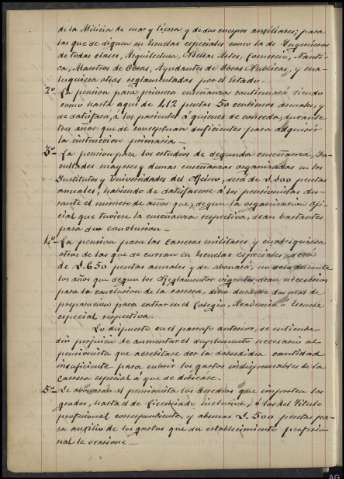 de la Milicia de mar y tierra y de sus cuerpos auxiliares; para
las que se siguen en Escuelas especiales como la de Ingenieros
de todas clases, Arquitectura, Bellas Artes, Comercio, Nauti-
ca, Maestros de Obras, Ayudantes de Obras Publicas, y cua-
lesquiera otras reglamentadas por el Estado.
2º La pension para primera enseñanza continuará siendo
como hasta aquí de 412 pesetas 50 centimos anuales, y
se satisfará, a los parientes a quienes se conceda, durante
los años que se conceptuen suficientes para adquirir
la instruccion primaria.
3º La pension para los estudios de segunda enseñanza, Fa-
cultades mayores y demas enseñanzas organizadas en los
Institutos y Universidades del Reino, será de 1.500 pesetas
anuales, habiendo de satisfacerse a los pensionistas du-
rante el numero de años que, segun la organizacion ofi-
cial que tuviere la enseñanza respectiva, sean bastantes
para su conclusion.
4º La pension para las carreras militares y cualesquiera
otras de las que se cursan en Escuelas especiales, será
de 1.650 pesetas anuales y se abonará, no solo durante
los años que segun los Reglamentos vigentes sean necesarios
para la conclusion de la carrera, sino durante dos mas de
preparacion para entrar en el Colegio, Academia o Escuela
especial respectiva.
Lo dispuesto en el parrafo anterior, se entiende
sin perjuicio de aumentar el suplemento necesario al
pensionista que acreditare ser la susodicha cantidad
insuficiente para cubrir los gastos indispensables de la
Carrera especial a que se dedicase.
5º Se abonarán al pensionista los derechos que importen los
grados, hasta el de Licenciado inclusive, o los del Titulo
profesional correspondiente, y ademas 1.500 pesetas pa-
ra auxilio de los gastos que su establecimiento profesio-
nal le ocasione.
AG